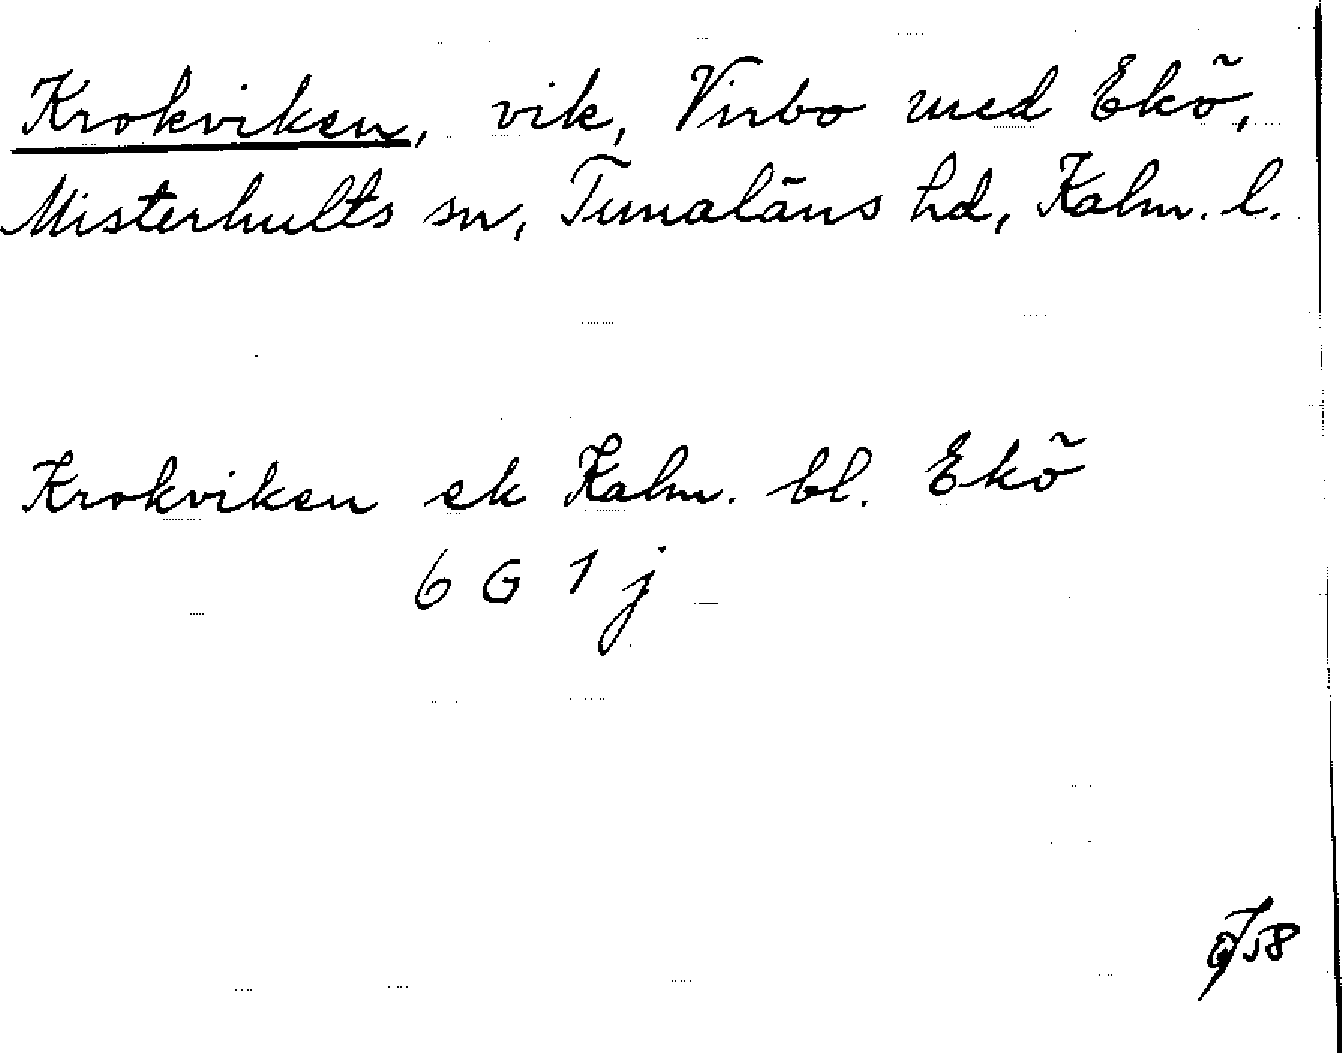 Krokviken, vik, Virbo med Ekö,
Misterhults sn, Tunaläns hd, Kalm. l.
Krokviken ek Kalm. bl. Ekö
6 G 1 j
58